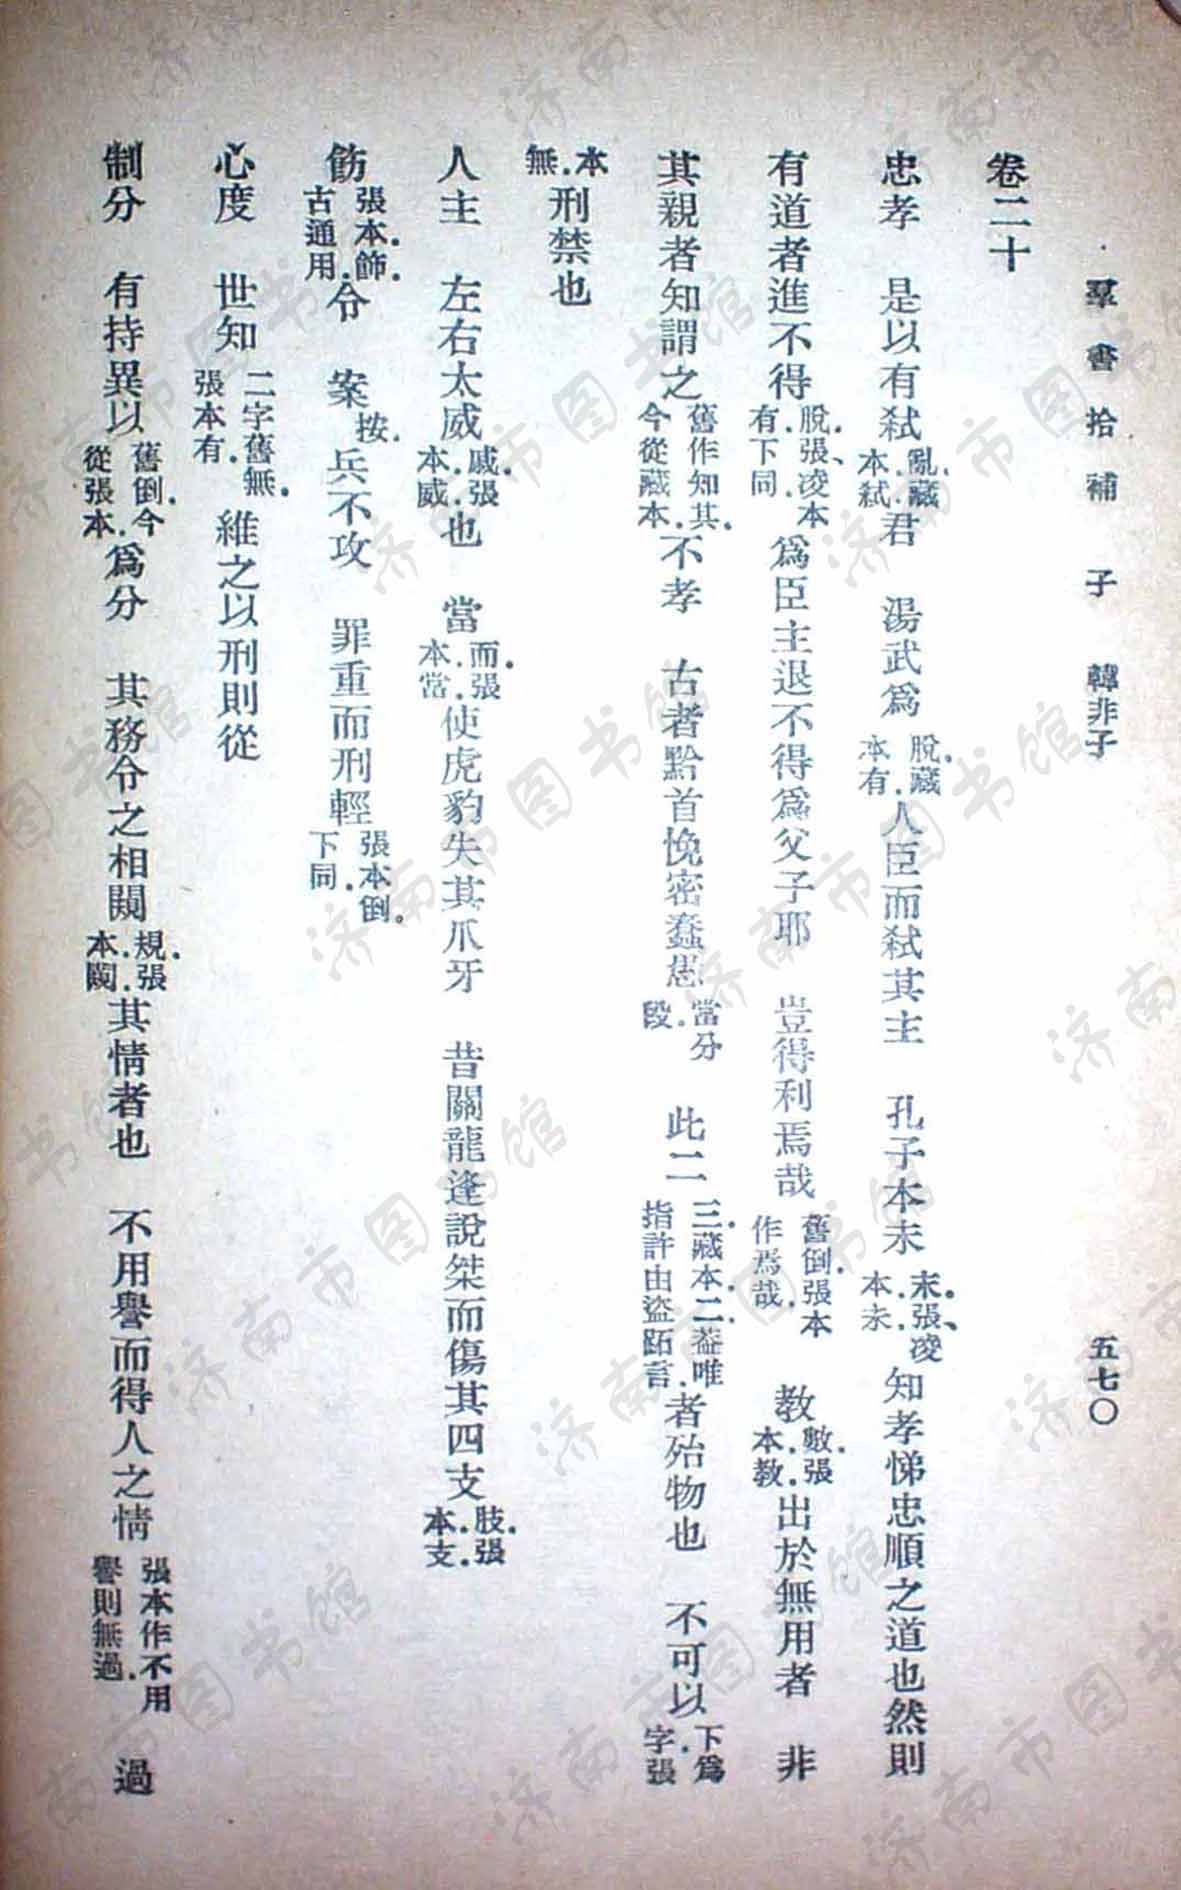 羣書拾補　子　韓非子　五七〇
卷二十
忠孝　是以有弑亂、藏本弑。君　湯武爲脫、藏本有。人臣而弑其主　孔子本未末。張、凌本未。知孝悌忠順之道也然則
有道者進不得脫。張、凌本有。下同。爲臣主退不得爲父子耶　豈得利焉哉舊倒。張本作焉哉。　教數。張本教。出於無用者　非
其親者知謂之舊作知其。今從藏本。不孝　古者黔首悗密蠢愚當分段。　此二三。藏本二。葢唯指許由盜跖言。者殆物也　不可以下爲字。張
本無。刑禁也
人主　左右太威戚。張本威。也　當而。張本當。使虎豹失其爪牙　昔關龍逢說桀而傷其四支肢。張本支。
飭張本飾。古通用。令　案按。兵不攻　罪重而刑輕張本倒。下同。
心度　世知二字舊無。張本有。維之以刑則從
制分　有持異以舊倒。今從張本。爲分　其務令之相闚規。張本闚。其情者也　不用譽而得人之情張本作不用譽則無過。　過